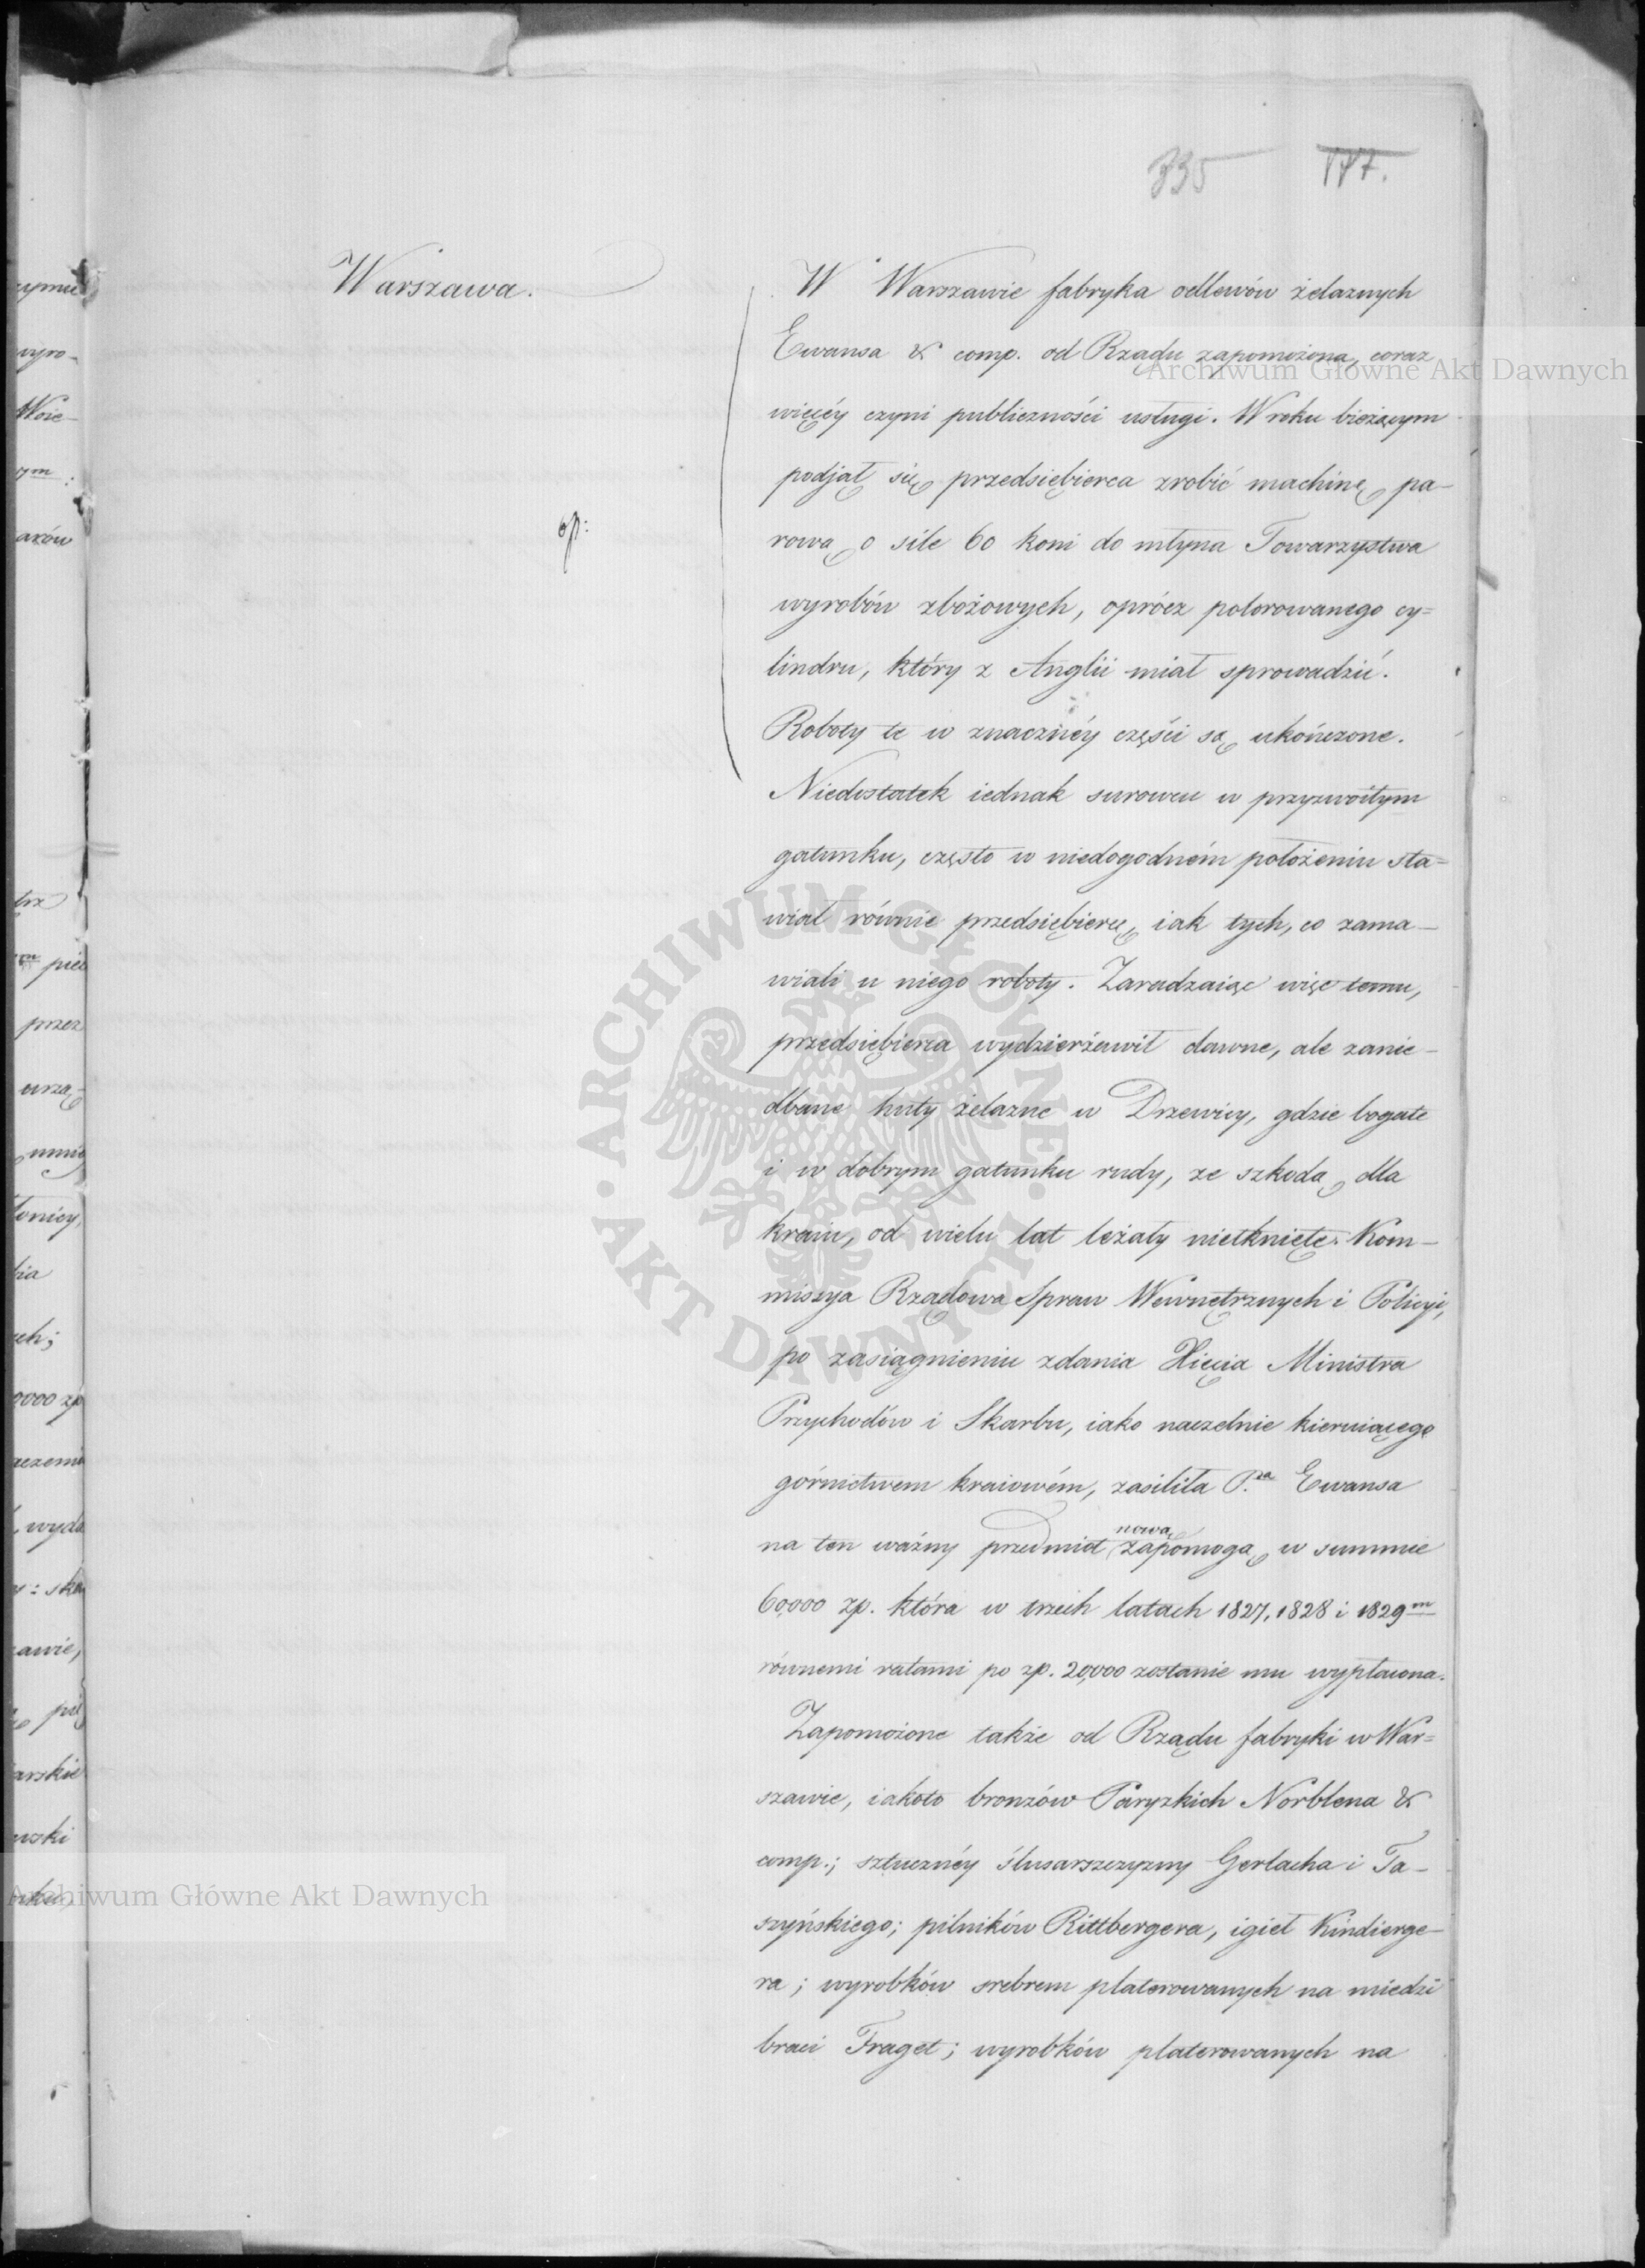 335 177.
Warszawa.
op:
W Warszawie fabryka odlewów żelaznych
Ewansa & comp. od Rządu zapomożona, coraz
więcéy czyni publiczności usługi. W roku bieżącym
podjął się przedsiębierca zrobić machinę pa-
rową o sile 60 koni do młyna Towarzystwa
wyrobów zbożowych, oprócz polorowanego cy=
lindru, który z Anglii miał sprowadzić.
Roboty te w znacznéy części są ukończone.
Niedostatek iednak surowcu w przyzwoitym
gatunku, często w niedogodném położeniu sta=
wiał równie przedsiębiercę, iak tych, co zama-
wiali u niego roboty. Zaradzaiąc więc temu,
przedsiębierca wydzierżawił dawne, ale zanie-
dbane huty żelazne w Drzewicy, gdzie bogate
i w dobrym gatunku rudy, ze szkodą dla
kraiu, od wielu lat leżały nietknięte. Kom-
missya Rządowa Spraw Wewnętrznych i Policyi,
po zasiągnieniu zdania Xięcia Ministra
Przychodów i Skarbu, iako naczelnie kieruiącego
górnictwem kraiowém, zasiliła P.na Ewansa
na ten ważny przedmiot nową zapomogą w summie
60,000 zp. która w trzech latach 1827, 1828 i 1829m
równemi ratami po zp. 20,000 zostanie mu wypłacona.
Zapomożone także od Rządu fabryki w War=
szawie, iakoto bronzów Paryzkich Norblena &
comp.; sztucznéy ślusarszczyzny Gerlacha i Ta-
szyńskiego; pilników Rittbergera, igieł Kindierge-
ra; wyrobków srebrem platerowanych na miedzi
braci Fraget; wyrobków platerowanych na
Archiwum Główne Akt Dawnych
ARCHIWUM GŁÓWNE · AKT DAWNYCH ·
Archiwum Główne Akt Dawnych